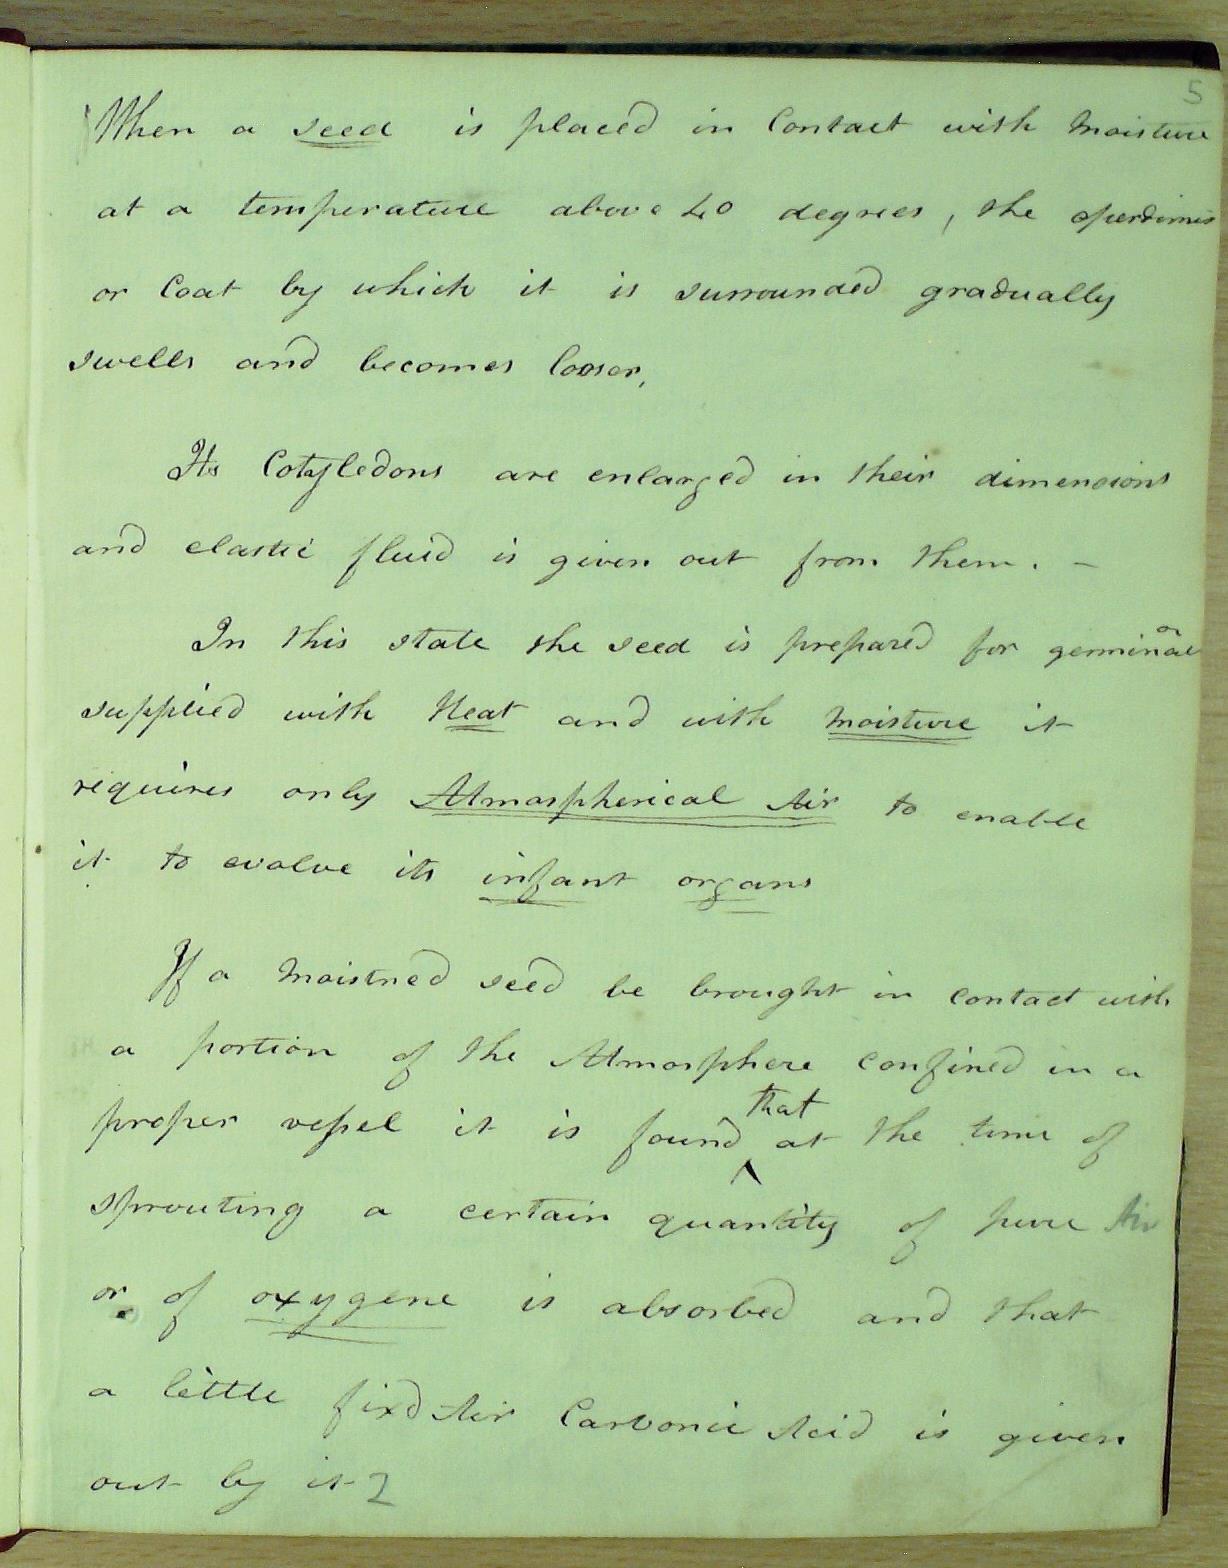 5
When a seed is placed in Contact with Moisture
at a temperature above 40 degrees, the eperdimis
or Coat by which it is surrounded gradually
swells and becomes looser,
Its Cotyledons are enlarged in their dimensions
and elastic fluid is given out from them. –
In this state the seed is prepared for
supplied with Heat and with Moisture it
requires only Atmospherical Air to enable
it to evolve its infant organs
If a Moistned seed be brought in contact with
a portion of the Atmosphere confined in a
proper vessel it is found that at the time of
sprouting a certain quantity of pure Air
or of oxygene is absorbed and that
a little fixd Air Carbonic Acid is given
out by it